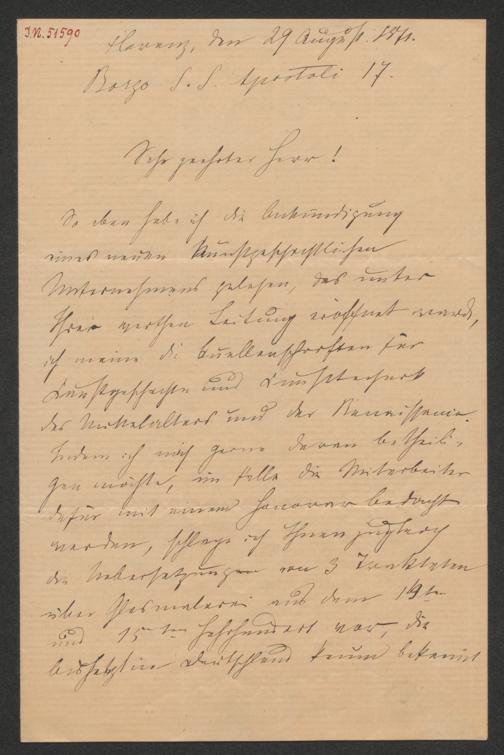 J.N. 51590
Florenz, den 29 August 1871.
Borgo S. S. Apostoli 17.
Sehr geehrter Herr!
So eben habe ich die Ankündigung
eines neuen kunstgeschichtlichen
Unternehmens gelesen, das unter
Ihrer werthen Leitung eröffnet wurde,
ich meine die Quellenschriften für
Kunstgeschichte und Kunsttechnik
des Mittelalters und der Renaissance.
Indem ich mich gerne daran betheili-
gen möchte, im Falle die Mitarbeiter
dafür mit einem Honorar bedacht
werden, schlage ich Ihnen zugleich
die Uebersetzungen von 3 Traktaten
über Glasmalerei aus dem 14ten
und 15ten Jahrhundert vor, die
bis jetzt in Deutschland kaum bekannt